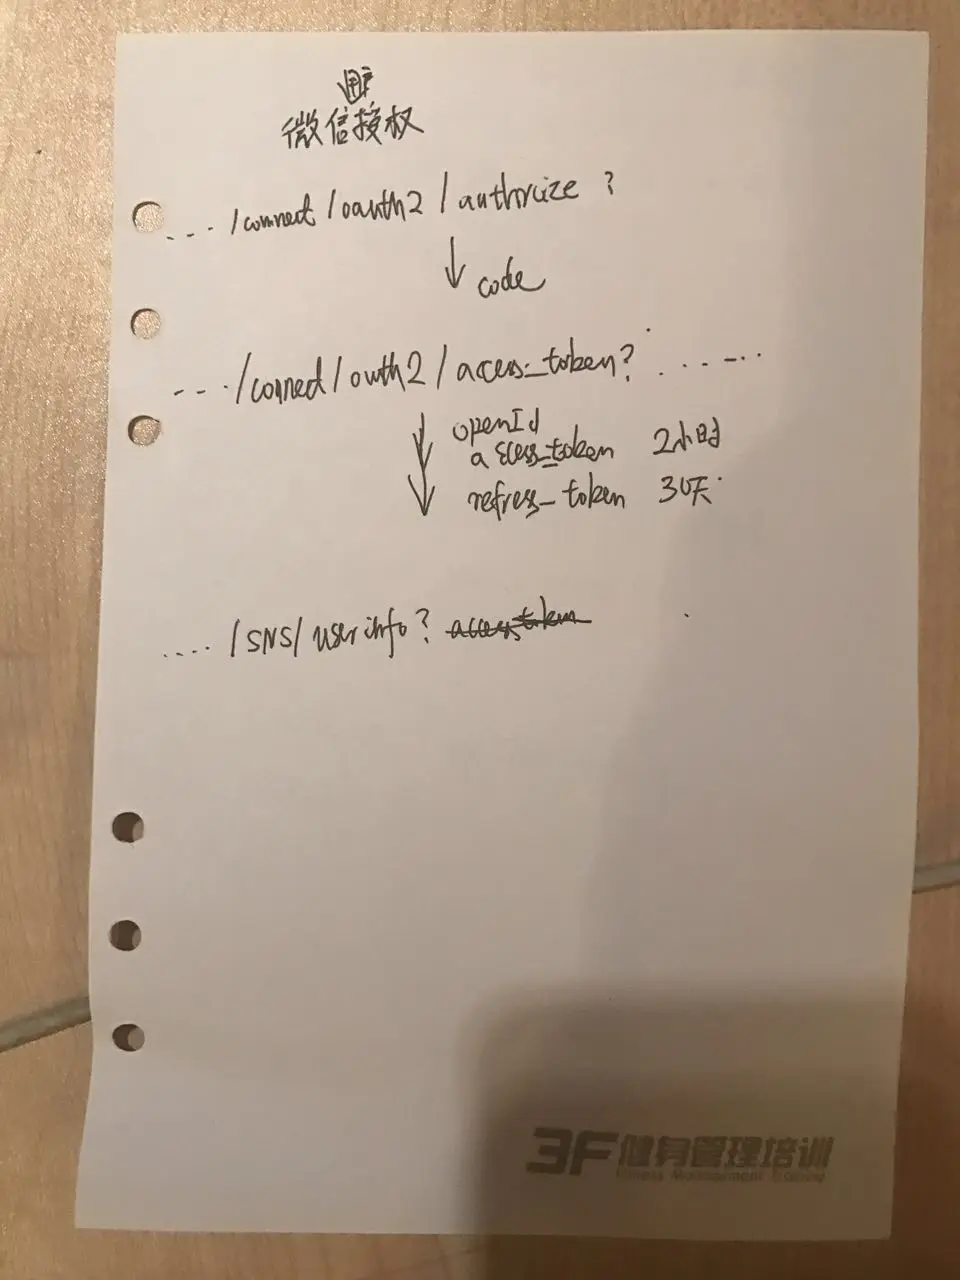 用户
微信授权
... /connect / oauth2 / authrize ?
code
... /conned / outh2 / acces_token? ......
openId
access_token 2小时
refresh_token 30天
.... /SNS/ userinfo? access_token
3F健身管理培训
Fitness Management Training